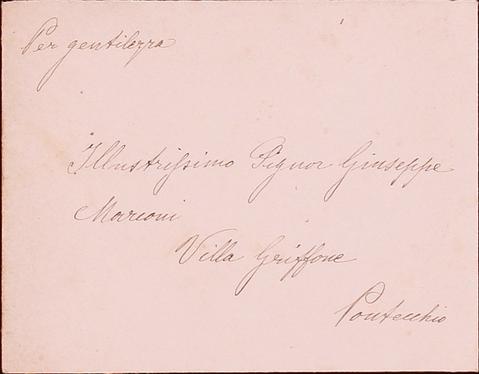 Per gentilezza
Illustrissimo Signor Giuseppe
Marconi
Villa Griffone
Pontecchio